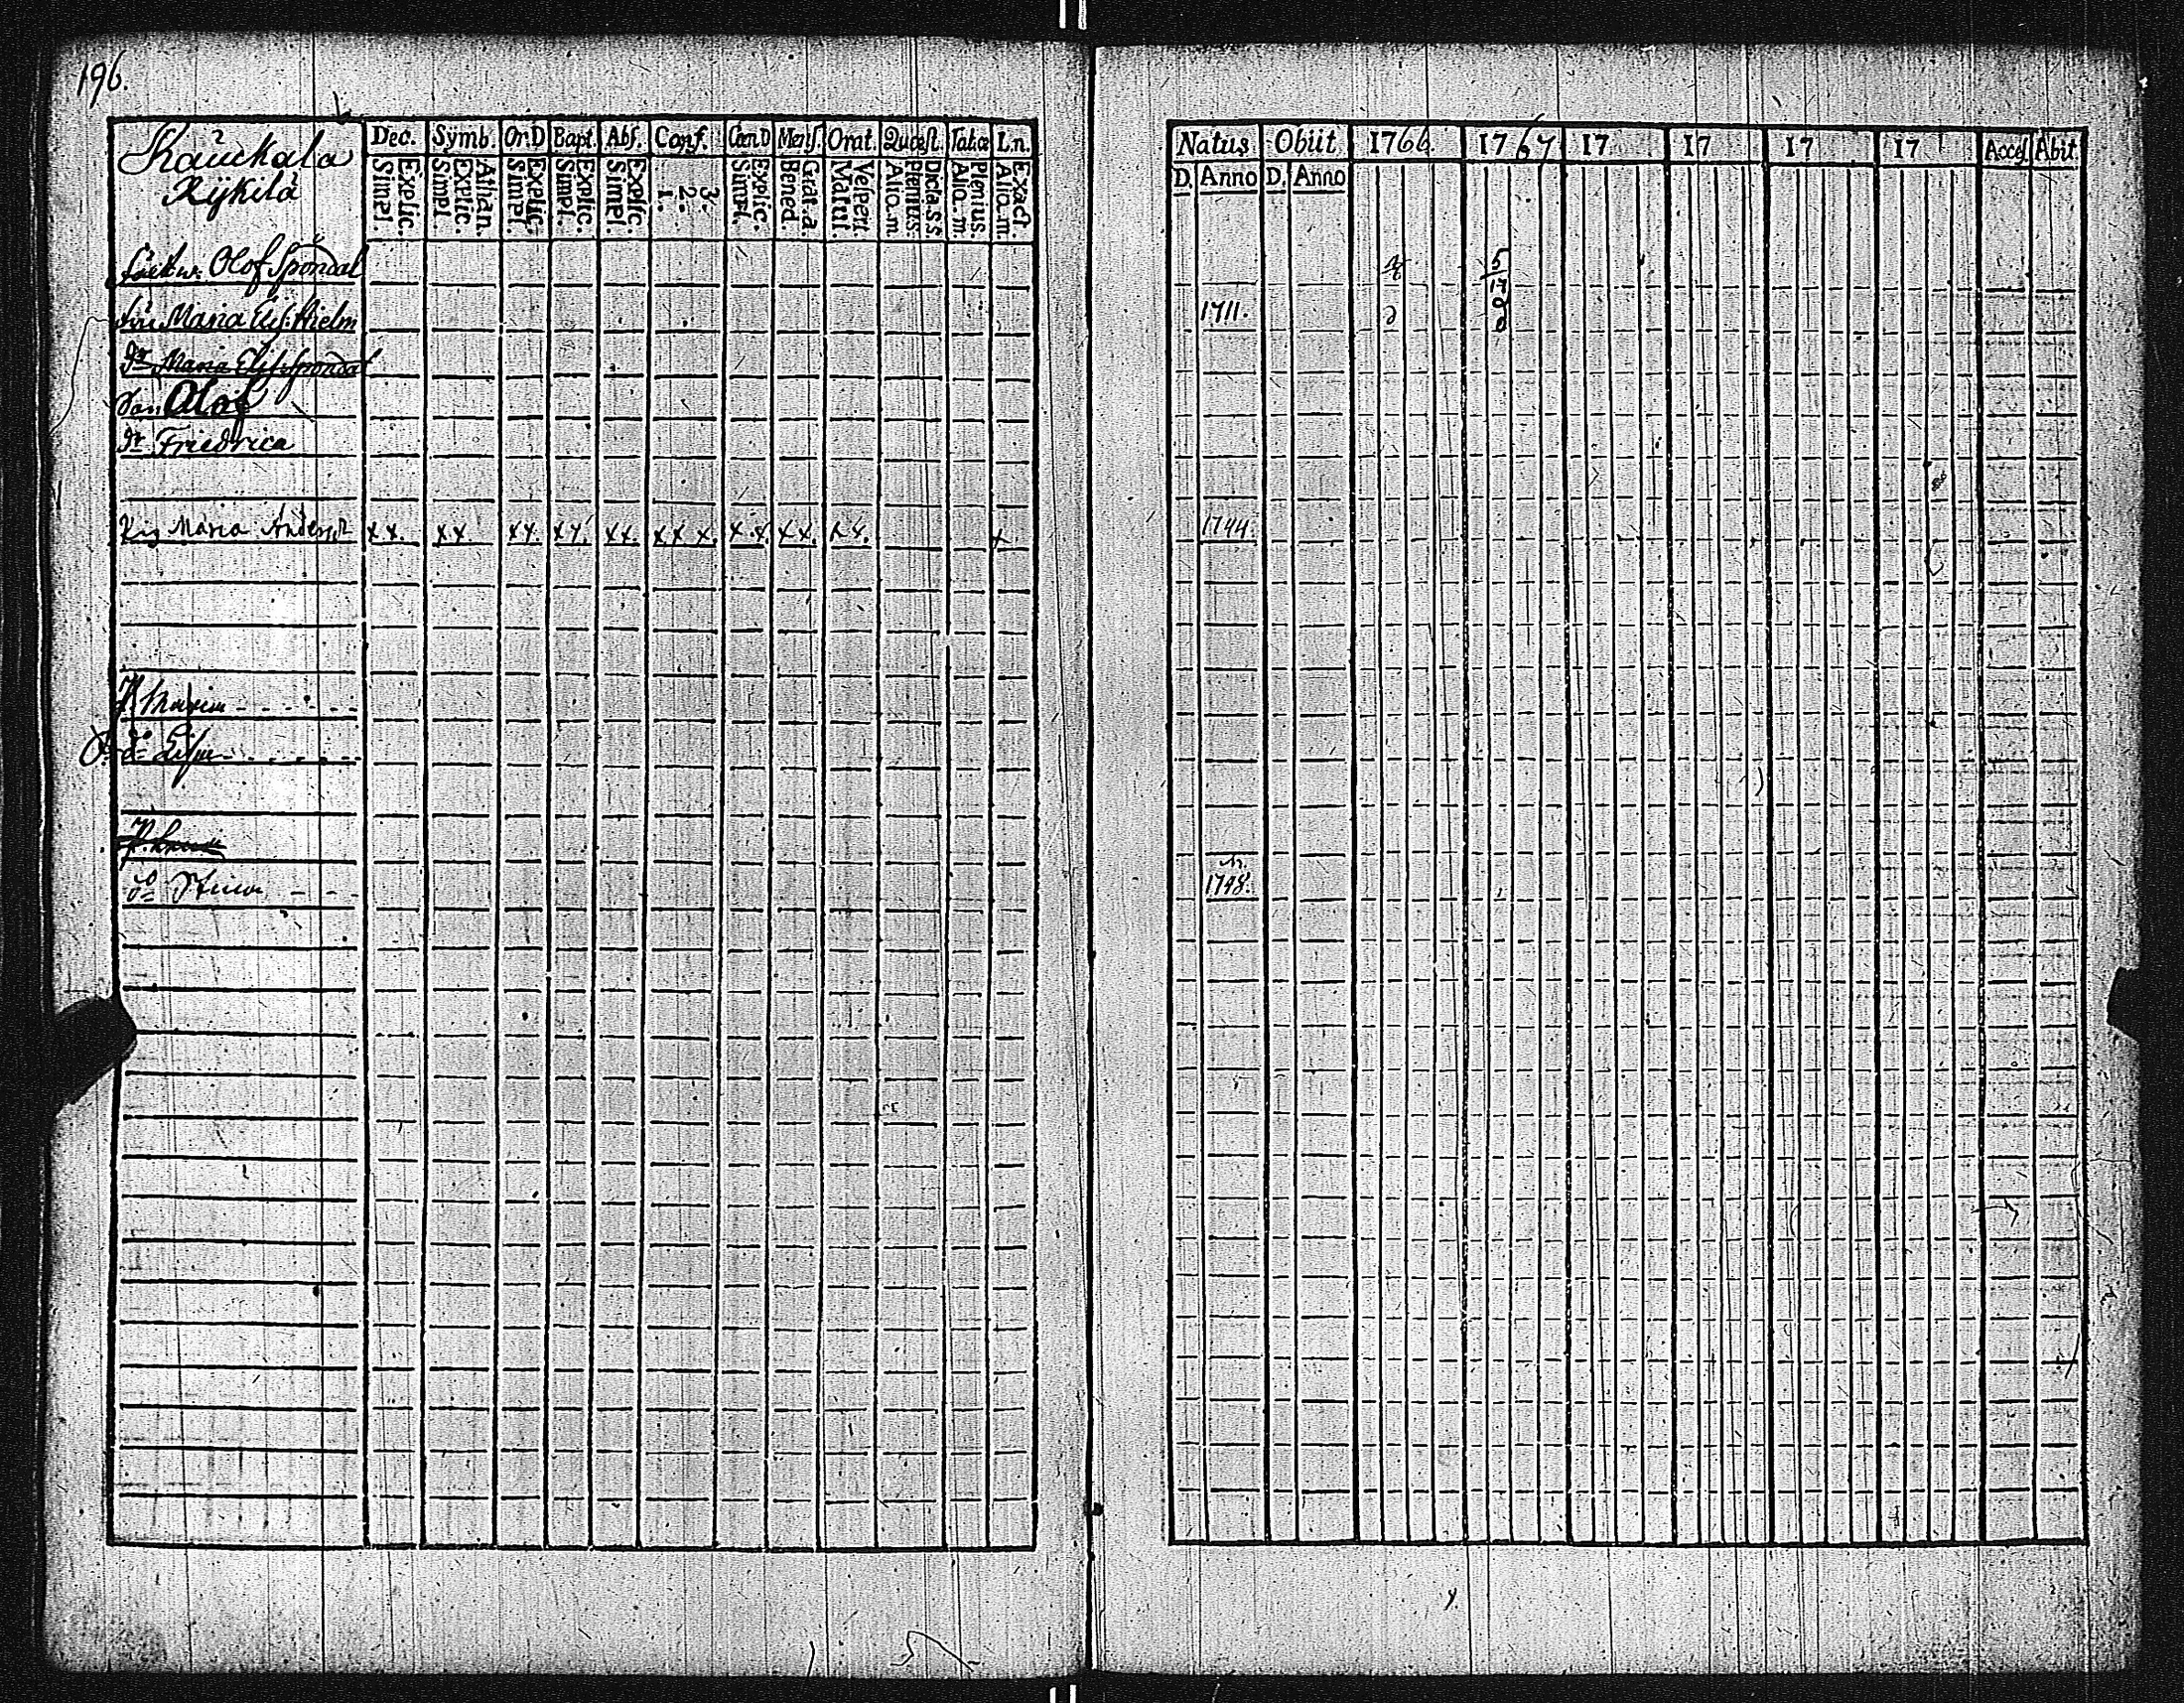 196.
Kauckala
Rÿkilä
Dec. Symb. Or.D Bapt. Abs. Conf. Cœn.D Mens. Orat. Quæst. Tab.œ L.n.
Explic. Simpl. Athan. Explic. Simpl Explic. Simpl. Explic. Simpl. Explic. Simpl. 3. 2. 1. Explic. Simpl. Grat. a. Bened. Vespert. Matut. Dicta S.S. Plenius Alio.m. Plenius. Alio.m. Exact. Alio.m.
Natus Obiit 1766. 1767 17 17 17 17 Acces. Abit
D. Anno D. Anno
Olof Spondal 5/17
Maria Elis: Hielm 1711.
dr Maria Elis: Spondal
Son Olof
dr Friedrica
Pig Maria Andersdr x x. x x. x x. x x. x x. x x x. x. x. x x. x x. x 1744
P. Maria
do Lisa
P.
do Stina 1748.